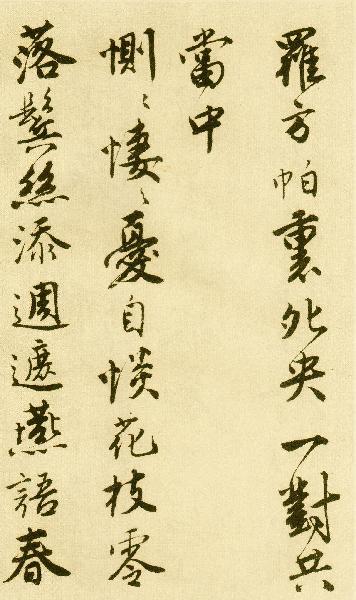 羅方帕裏夗央一對共
當中
惻〻悽〻憂自惔花枝零
落鬢絲添週遮燕語春